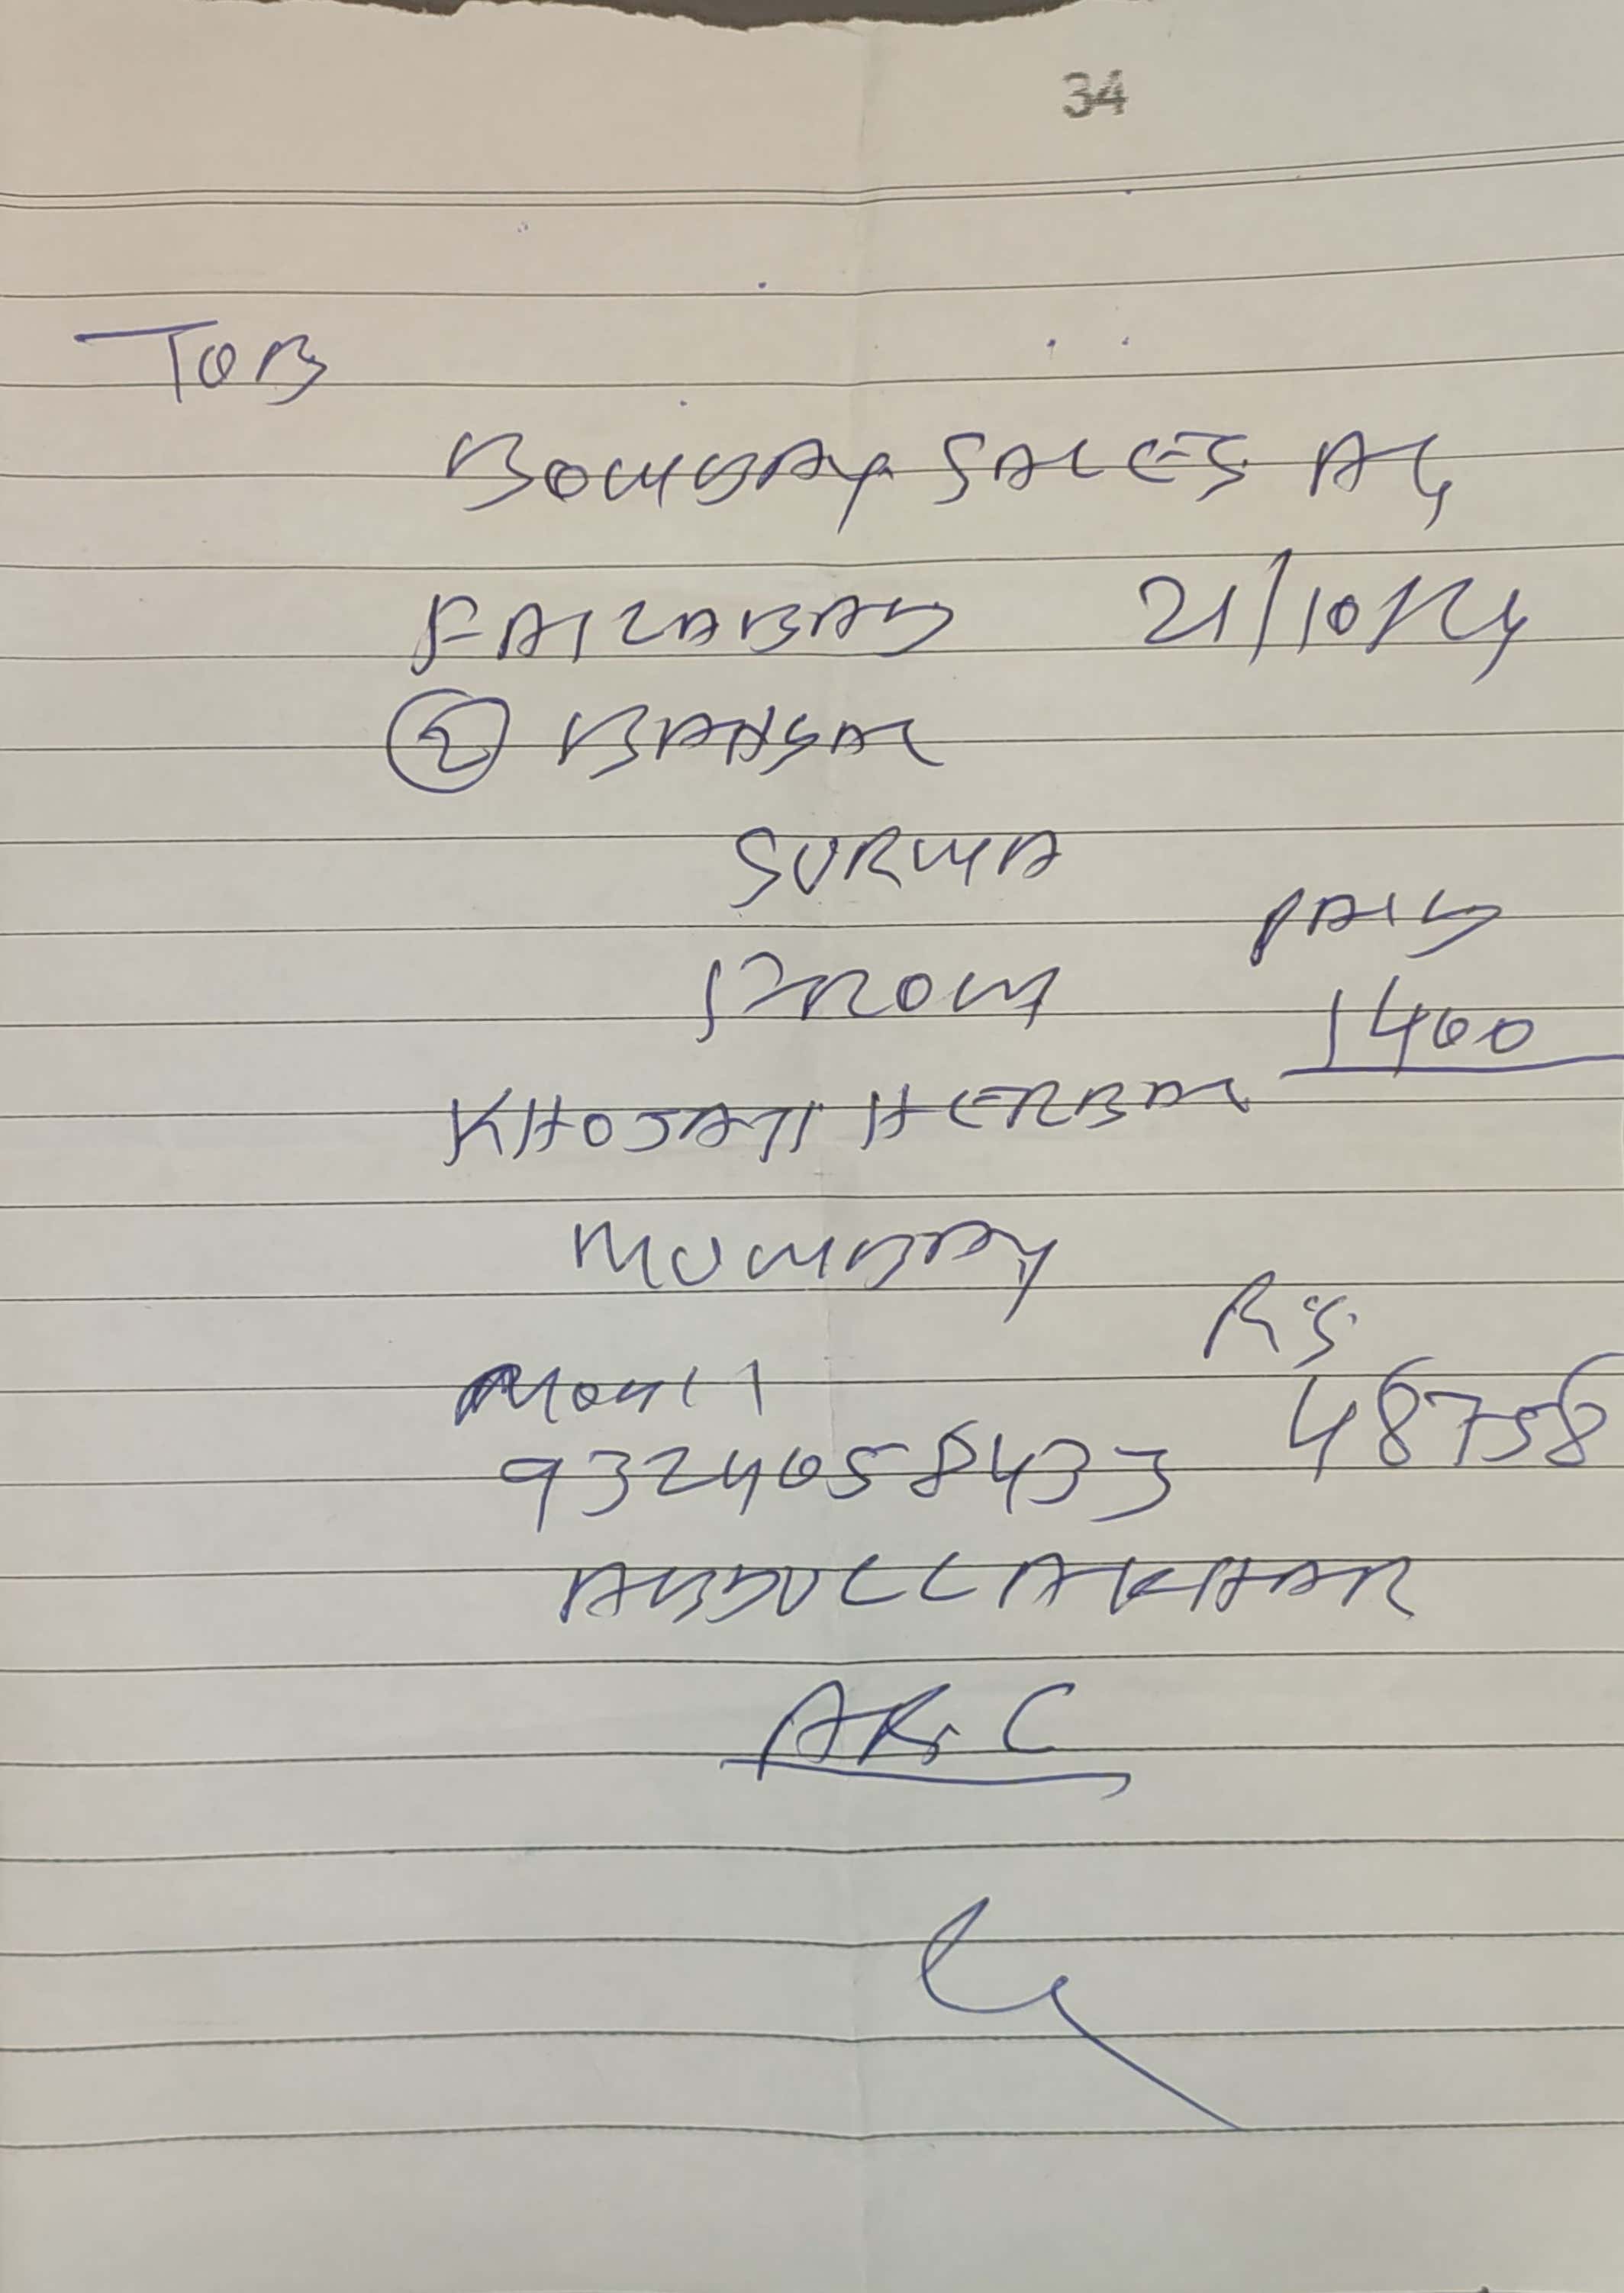 34
TOB
BOMBAY SALES AG
FAIZABAD 21/10/24
② BANSAL
SURMA
PAID
FROM
1400
KHOJATI HERBAL
MUMBAY
RS
MOBIL
48758
9324058433
ABDULLAKHAR